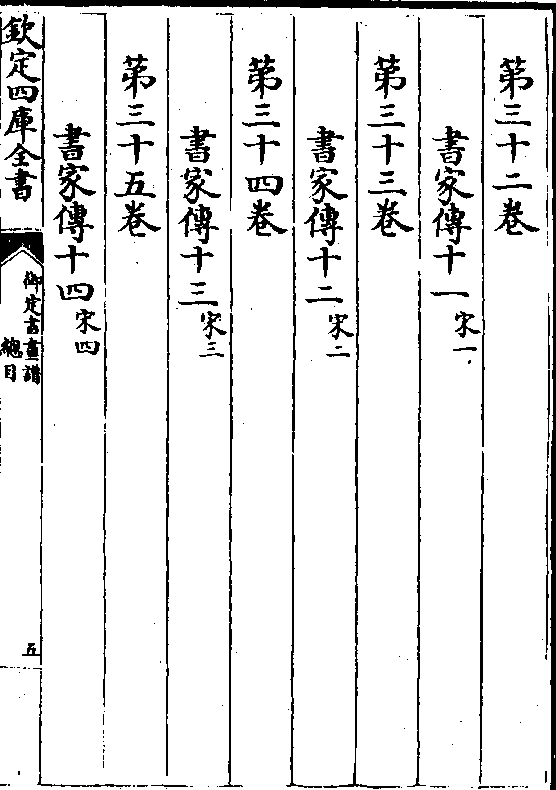 第三十二卷
書家傳十一宋一
第三十三卷
書家傳十二宋二
第三十四卷
書家傳十三宋三
第三十五卷
書家傳十四宋四
欽定四庫全書
御定書畫譜
總目
五